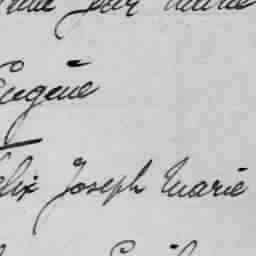 Jean Marie
Eugène
elix Joseph Marie